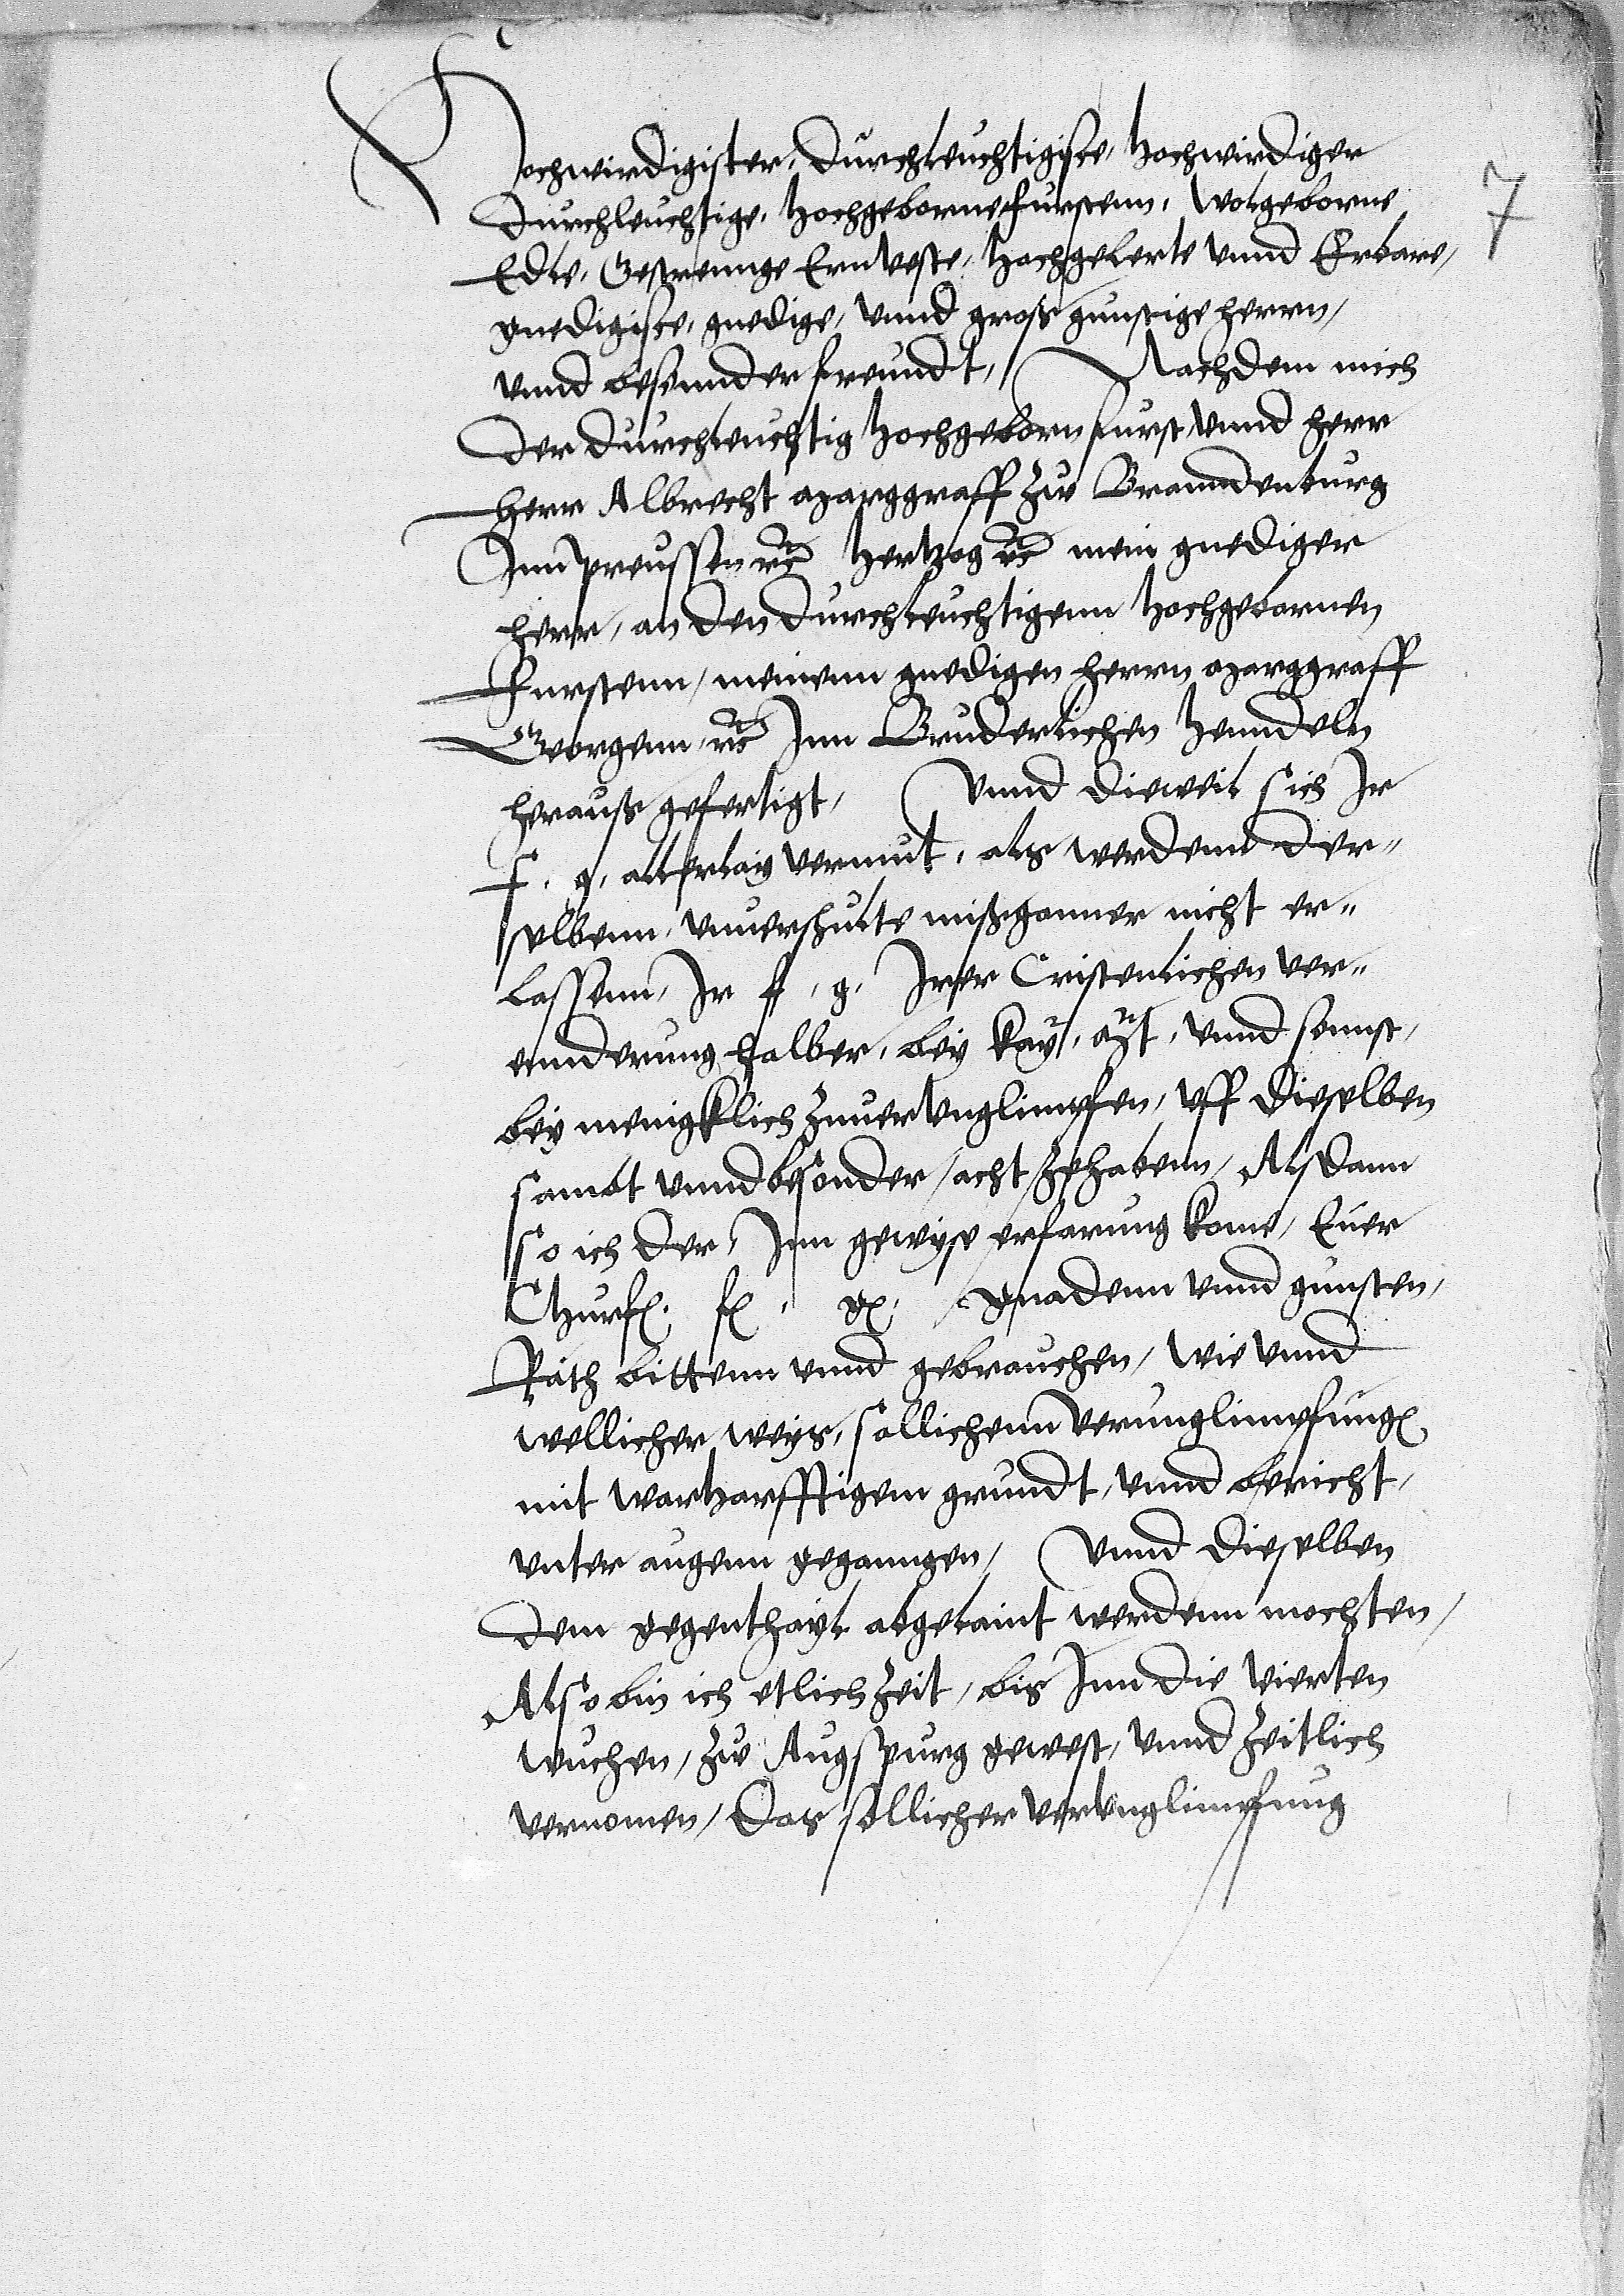 7
Hochwirdigister, Durchleuchtigiste, Hochwirdiger
Durchleuchtige, Hochgeborne fursten, Wolgeborne
Edle, Gestrennge Ernveste, Hochgelerte vnnd Erbare,
gnedigiste, gnedige, vnnd gross gunstige herrn,
vnnd besonnder freundt, Nachdem mich
der durchleuchtig Hochgeborn furst vnnd herr
herr Albrecht Marggraff zw Branndenburg
Inn Preussen rc Hertzog rc mein gnediger
herr, an den durchleuchtigenn hochgebornen
Furstenn, meinenn gnedigen herrn Marggraff
Georgenn, rc Inn Bruderlichen henndeln
herauss gefertigt, Vnnd dieweil sich Ir
f. g. allerlay vermut, als werdenn der"
selbenn, vnuerschulte missgonner nicht er"
lassenn, Ir f. g. Irer Cristenlichen ver"
enderung halber, bey kay. Mt. vnnd sonnst,
bey menigklich zuuervnglimpfen, vff dieselben
sambt vnnd besonder, acht zehabenn, Alsdann
so ich der, Inn gewyse erfarung kome, Euer
Churf. f. g. gnadenn vnnd gunsten,
Rath bittenn vnnd gebrauchen, wie vnnd
wellicher weys, sollichenn verunglimpfung
mit warhafftigem grundt, vnnd bericht,
vnter augenn geganngen, Vnnd dieselben
dem gegenthayl abgelaint werdenn mochten,
Also bin ich etlich zeit, bis Inn die vierten
wuchen, zw Augspurg gewest, vnnd zeitlich
vernomen, Das sollicher vervnglimpfung